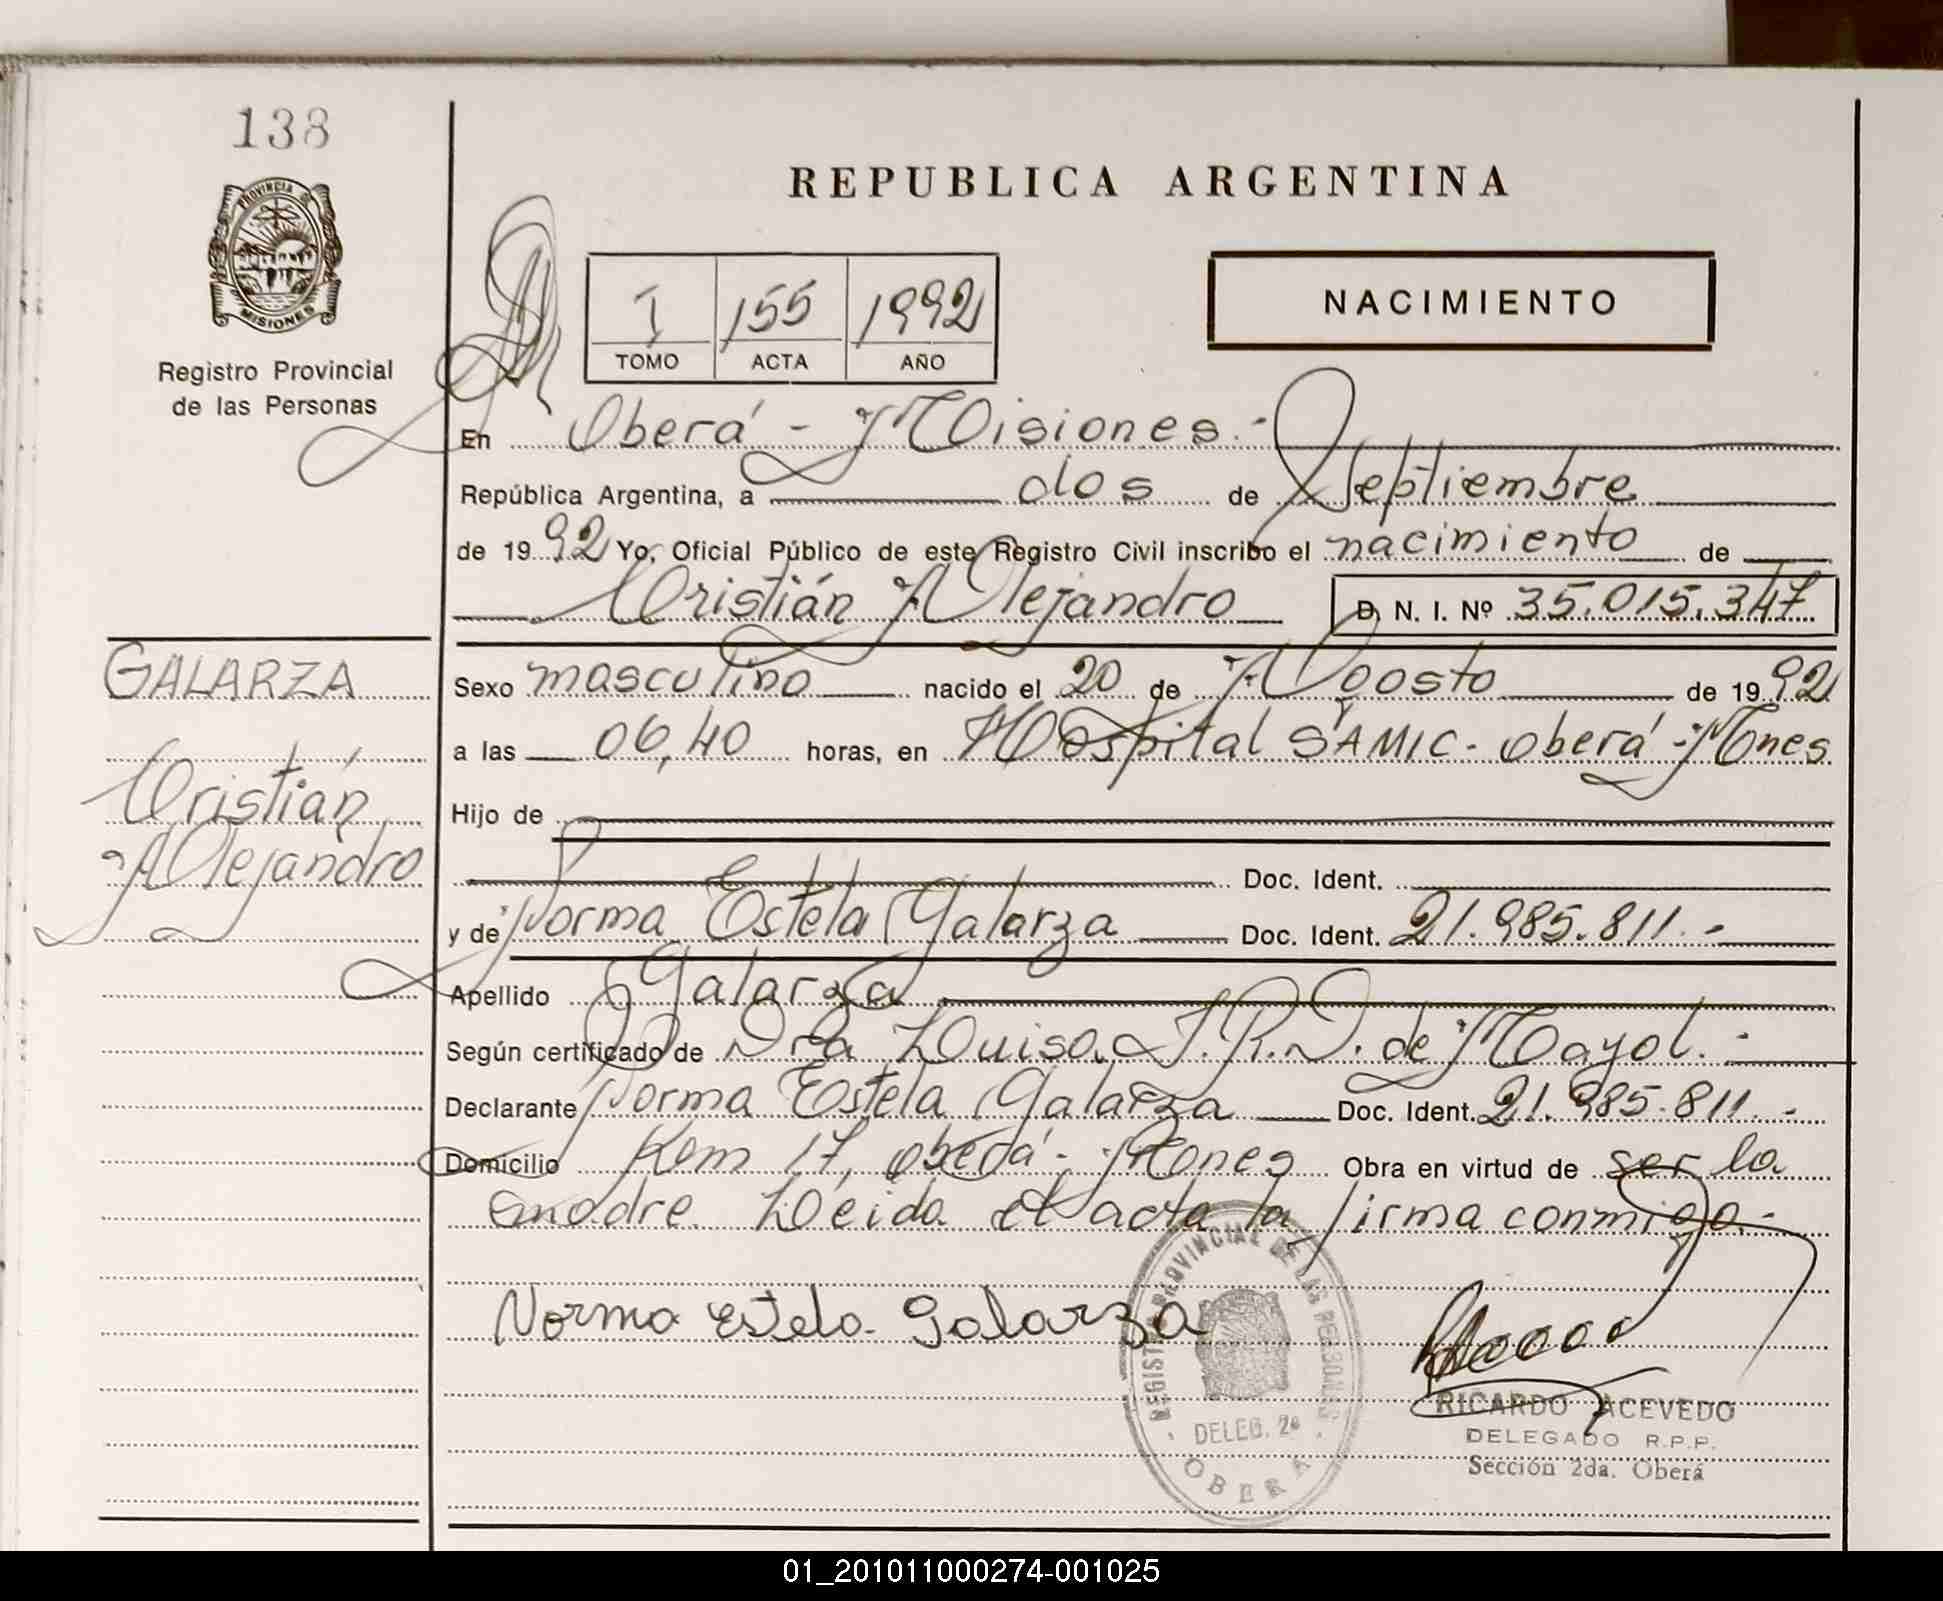 138
REPUBLICA ARGENTINA
PROVINCIA DE
MISIONES
Registro Provincial
de las Personas
I 155 1992
TOMO ACTA AÑO
NACIMIENTO
En Oberá - Misiones.-
República Argentina, a dos de Septiembre
de 1992 Yo, Oficial Público de este Registro Civil inscribo el nacimiento de
Cristián Alejandro D. N. I. Nº 35.015.347.
GALARZA
Cristián
Alejandro
Sexo masculino nacido el 20 de Agosto de 1992
a las 06,40 horas, en Hospital SAMIC - Oberá - Mnes
Hijo de
Doc. Ident.
y de Norma Estela Galarza Doc. Ident. 21.985.811.-
Apellido Galarza
Según certificado de Dra Luisa J.R.D. de Mayol.-
Declarante Norma Estela Galarza Doc. Ident. 21.985.811.-
Domicilio Km 17, Oberá - Mnes Obra en virtud de ser la
madre. Leida el acta la firma conmigo.-
Norma Estela Galarza
REGISTRO PROVINCIAL DE LAS PERSONAS
DELEG. 2a
OBERA
RICARDO ACEVEDO
DELEGADO R.P.P.
Sección 2da. Oberá
01_201011000274-001025